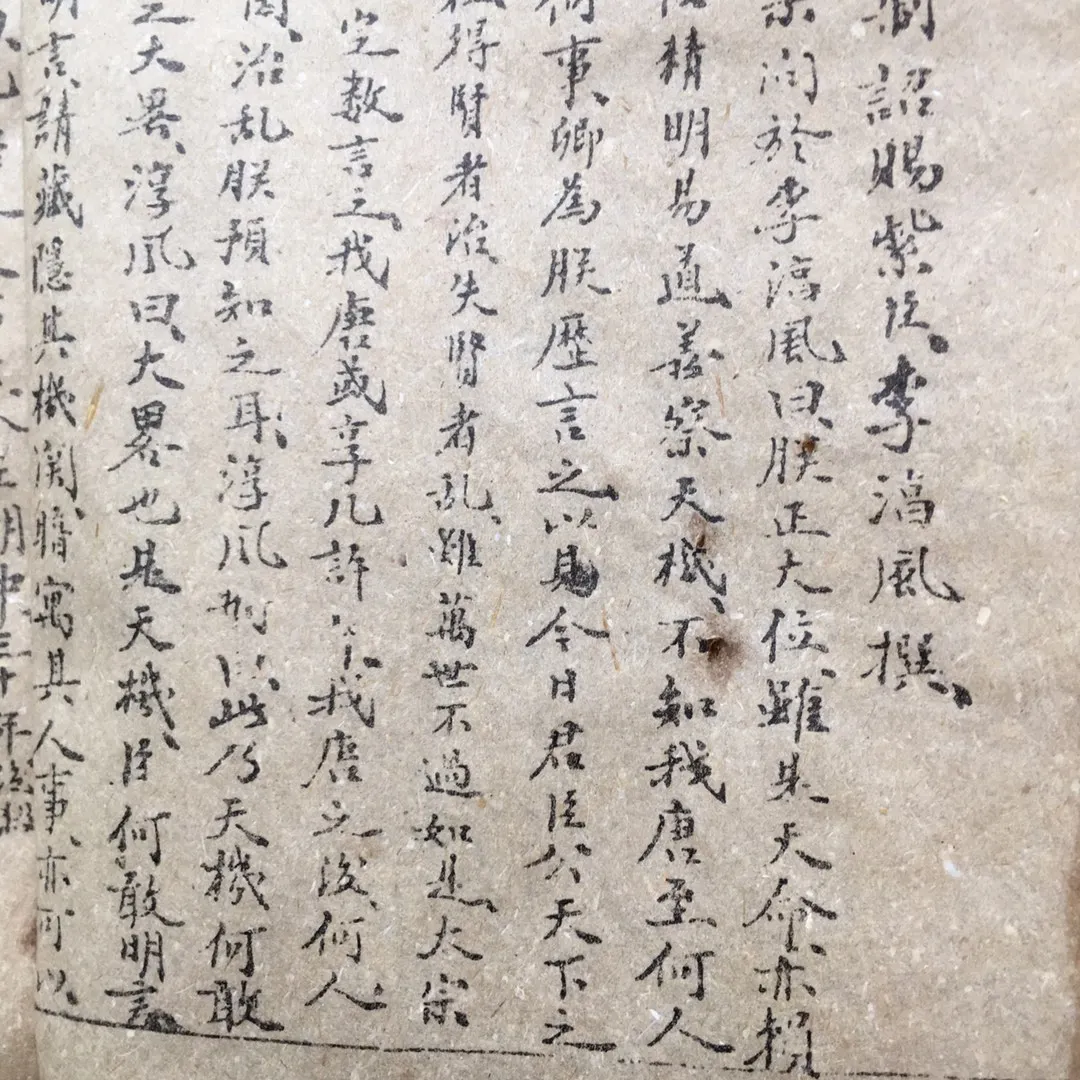 詔賜紫臣、李淳風撰、
宗问於李淳風曰、朕正大位、雖是天命、亦賴
精明易道、義察天機、不知我唐至何人
何事、卿為朕歷言之、以見今日君臣公天下之
得賢者治失賢者乱、雖萬世不過如是、太宗
定数言之、我唐或享几許 我唐之後、何人
周、治乱朕預知之耳、淳风 此乃天機何敢
之大畧、淳风曰、大畧也是天機、臣何敢明言、
明言、請藏隱其機関、暗寓其人事、亦可以、